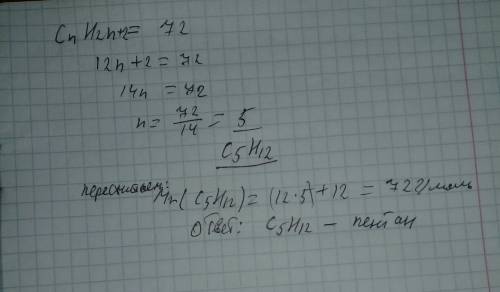 CnH2n+2 = 72
12n + 2 = 72
14n = 72
n = 72/14 = 5
C5H12
пересчитаем: Mr(C5H12) = (12·5) + 12 = 72 г/моль
Ответ: C5H12 – пентан